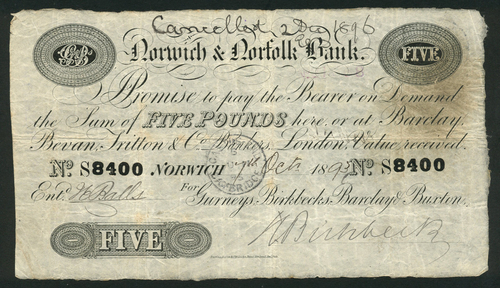 Cancelled 2 Dec 1896
Norwich & Norfolk Bank.
FIVE
I Promise to pay the Bearer on Demand
the Sum of FIVE POUNDS here, or at Barclay,
Bevan, Tritton & Co. Bankers, London, Value received.
No. S8400 NORWICH Oct. 189 No. S8400
For Gurneys, Birkbecks, Barclay & Buxton.
Entd. W Balls
FIVE
H Birkbeck